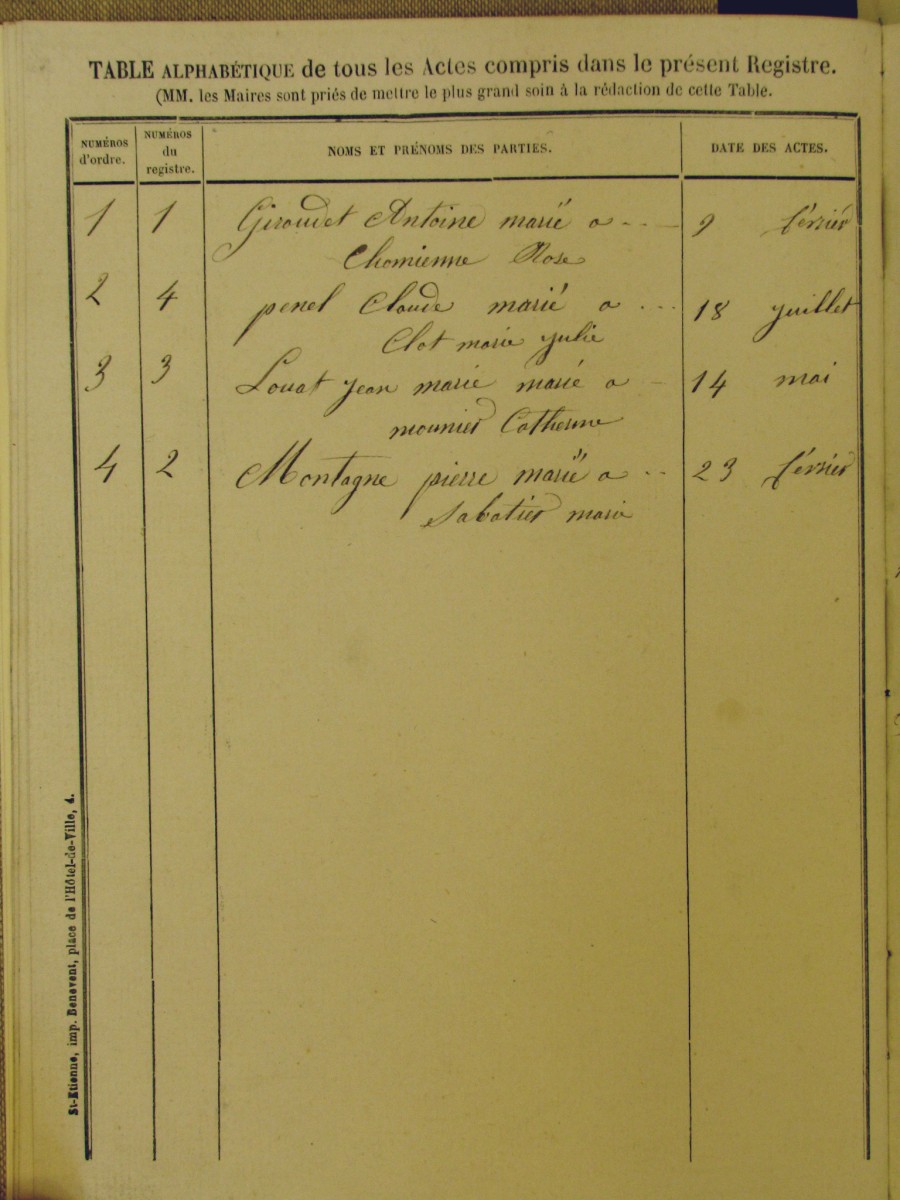 TABLE ALPHABÉTIQUE de tous les Actes compris dans le présent Registre.
(MM. les Maires sont priés de mettre le plus grand soin à la rédaction de cette Table.
NUMÉROS d'ordre. NUMÉROS du registre. NOMS ET PRÉNOMS DES PARTIES. DATE DES ACTES.
1 1 Giroudet Antoine marié a - - - 9 février
Chomienne Rose
2 4 penel Claude marié a - - - 18 juillet
Clot marie julie
3 3 Louat jean marie marié a - 14 mai
mounier Catherine
4 2 Montagne pierre marié a - - 23 février
Sabatier marie
St-Etienne, imp. Benevent, place de l'Hôtel-de-Ville, 4.